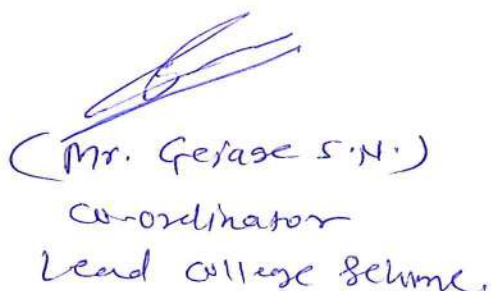 (Mr. Gejage S.N.)
Co-ordinator
Lead College Scheme.